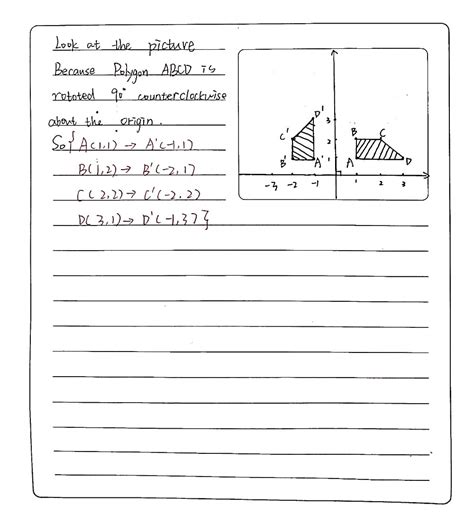 Look at the picture
Because Polygon ABCD is
rotated 90° counterclockwise
about the origin.
So{ A(1,1) → A'(-1,1)
B(1,2) → B'(-2,1)
C(2,2) → C'(-2,2)
D(3,1) → D'(-1,3)}
D'
3
C'
2
B C
B' A'
1
A D
-3 -2 -1 1 2 3